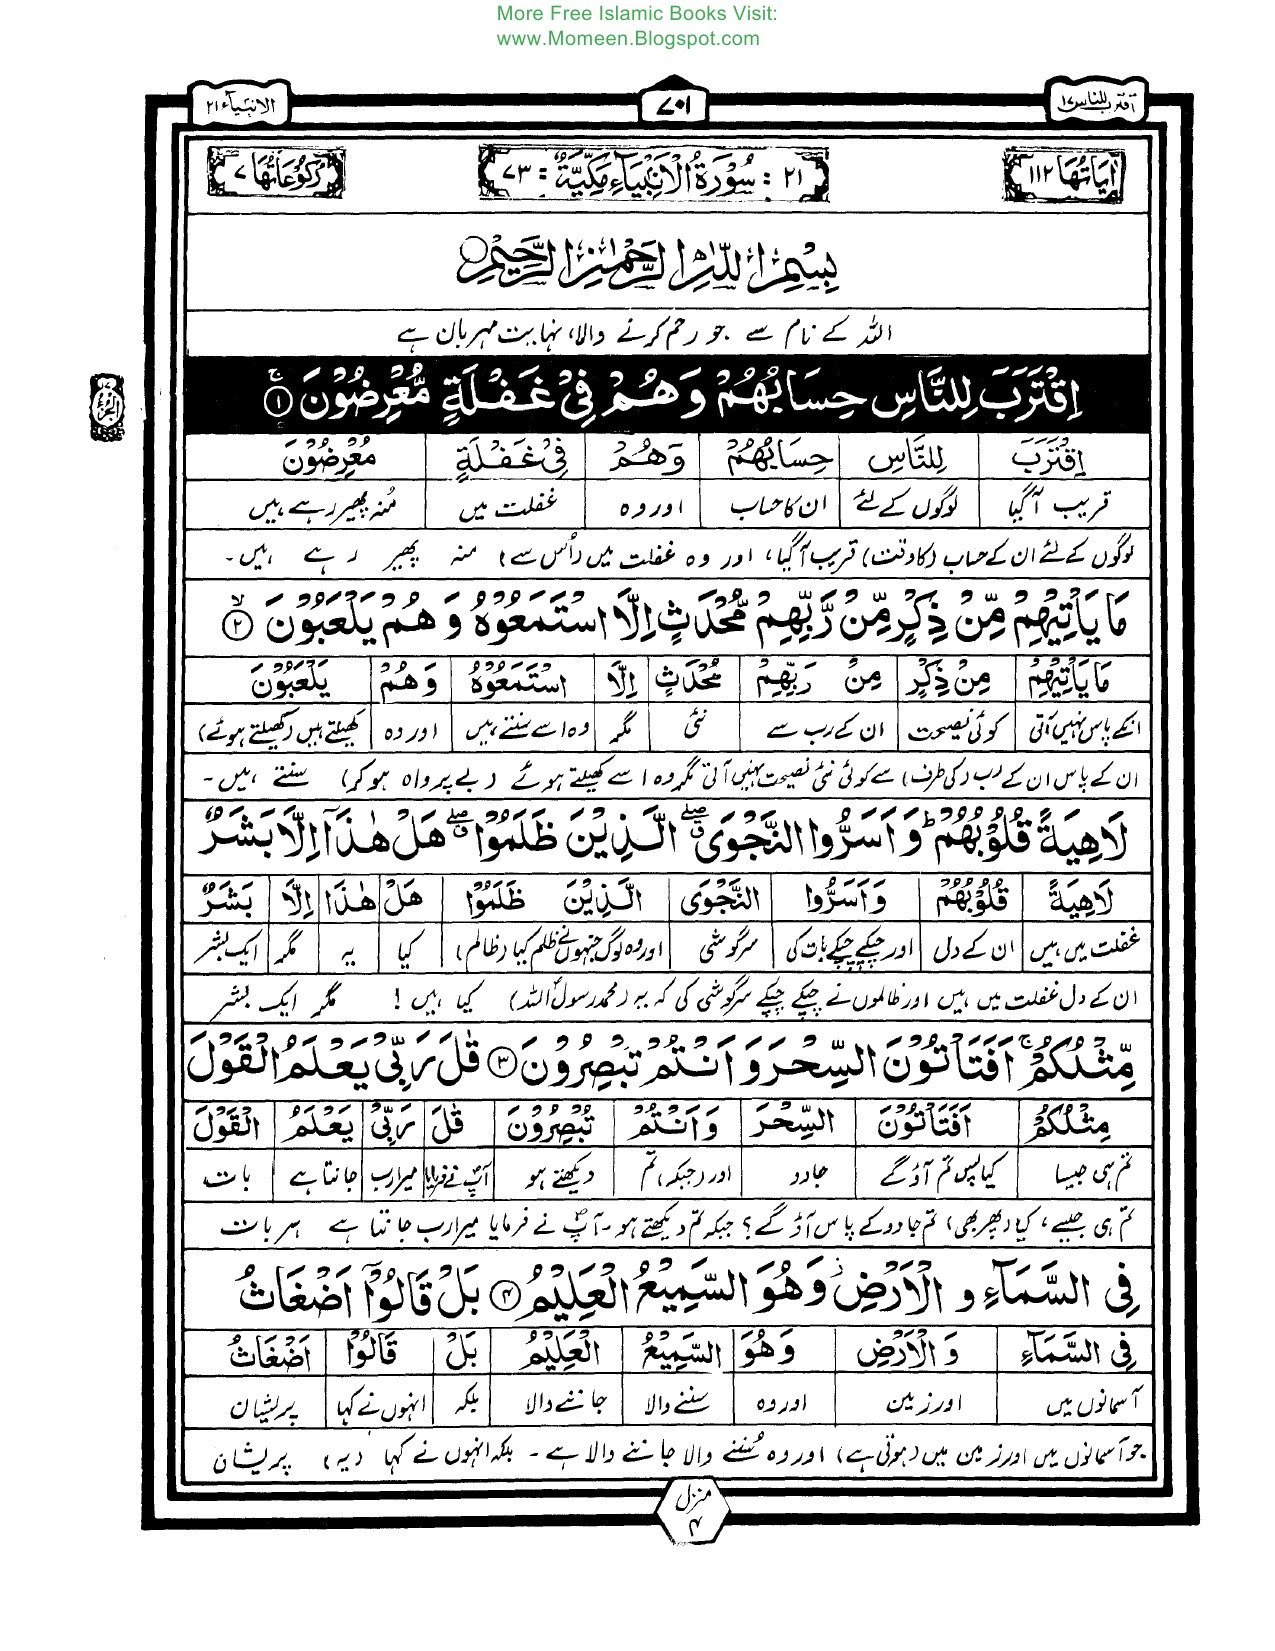 More Free Islamic Books Visit:
www.Momeen.Blogspot.com
اقترب للناس ۱۷ ۷۰۱ الانبیاء ۲۱
اٰيَاتُهَا ۱۱۲ ۲۱ : سُوْرَةُ الْاَنْبِيَآءِ مَكِّيَّةٌ : ۷۳ رُكُوْعَاتُهَا ۷
بِسْمِ اللّٰهِ الرَّحْمٰنِ الرَّحِيْمِ
اللہ کے نام سے جو رحم کرنے والا، نہایت مہربان ہے
اِقْتَرَبَ لِلنَّاسِ حِسَابُهُمْ وَهُمْ فِيْ غَفْلَةٍ مُّعْرِضُوْنَ ۚ ۱
اِقْتَرَبَ لِلنَّاسِ حِسَابُهُمْ وَهُمْ فِيْ غَفْلَةٍ مُعْرِضُوْنَ
قریب آگیا لوگوں کے لئے ان کا حساب اور وہ غفلت میں مُنہ پھیر رہے ہیں
لوگوں کے لئے ان کے حساب (کا وقت) قریب آگیا، اور وہ غفلت میں (اُس سے) منہ پھیر رہے ہیں۔
مَا يَاْتِيْهِمْ مِّنْ ذِكْرٍ مِّنْ رَّبِّهِمْ مُّحْدَثٍ اِلَّا اسْتَمَعُوْهُ وَهُمْ يَلْعَبُوْنَ ۙ ۲
مَا يَاْتِيْهِمْ مِنْ ذِكْرٍ مِنْ رَبِّهِمْ مُحْدَثٍ اِلَّا اسْتَمَعُوْهُ وَهُمْ يَلْعَبُوْنَ
انکے پاس نہیں آتی کوئی نصیحت ان کے رب سے نئی مگر وہ اسے سنتے ہیں اور وہ کھیلتے ہیں (کھیلتے ہوئے)
ان کے پاس ان کے رب (کی طرف) سے کوئی نئی نصیحت نہیں آتی مگر وہ اسے کھیلتے ہوئے (بے پرواہ ہو کر) سنتے ہیں۔
لَاهِيَةً قُلُوْبُهُمْ ؕ وَاَسَرُّوا النَّجْوَى ۖۗ الَّذِيْنَ ظَلَمُوْا ۖۗ هَلْ هٰذَآ اِلَّا بَشَرٌ
لَاهِيَةً قُلُوْبُهُمْ وَاَسَرُّوا النَّجْوَى الَّذِيْنَ ظَلَمُوْا هَلْ هٰذَا اِلَّا بَشَرٌ
غفلت میں ہیں ان کے دل اور چپکے چپکے بات کی سرگوشی اور وہ لوگ جنہوں نے ظلم کیا (ظالم) کیا یہ مگر ایک بشر
ان کے دل غفلت میں ہیں اور ظالموں نے چپکے چپکے سرگوشی کی کہ یہ (محمد رسول اللہ) کیا ہیں! مگر ایک بشر
مِّثْلُكُمْ ۚ اَفَتَاْتُوْنَ السِّحْرَ وَاَنْتُمْ تُبْصِرُوْنَ ۳ قٰلَ رَبِّيْ يَعْلَمُ الْقَوْلَ
مِثْلُكُمْ اَفَتَاْتُوْنَ السِّحْرَ وَاَنْتُمْ تُبْصِرُوْنَ قٰلَ رَبِّيْ يَعْلَمُ الْقَوْلَ
تم ہی جیسا کیا پس تم آؤ گے جادو اور (جبکہ) تم دیکھتے ہو آپؐ نے فرمایا میرا رب جانتا ہے بات
تم ہی جیسے، کیا (پھر بھی) تم جادو کے پاس آؤ گے؟ جبکہ تم دیکھتے ہو۔ آپؐ نے فرمایا میرا رب جانتا ہے ہر بات
فِي السَّمَآءِ وَ الْاَرْضِ ۡ وَهُوَ السَّمِيْعُ الْعَلِيْمُ ۴ بَلْ قَالُوْٓا اَضْغَاثُ
فِي السَّمَآءِ وَ الْاَرْضِ وَهُوَ السَّمِيْعُ الْعَلِيْمُ بَلْ قَالُوْٓا اَضْغَاثُ
آسمانوں میں اور زمین اور وہ سننے والا جاننے والا بلکہ انہوں نے کہا پریشان
جو آسمانوں میں اور زمین میں (ہوتی ہے) اور وہ سُننے والا جاننے والا ہے۔ بلکہ انہوں نے کہا (یہ) پریشان
منزل
۴